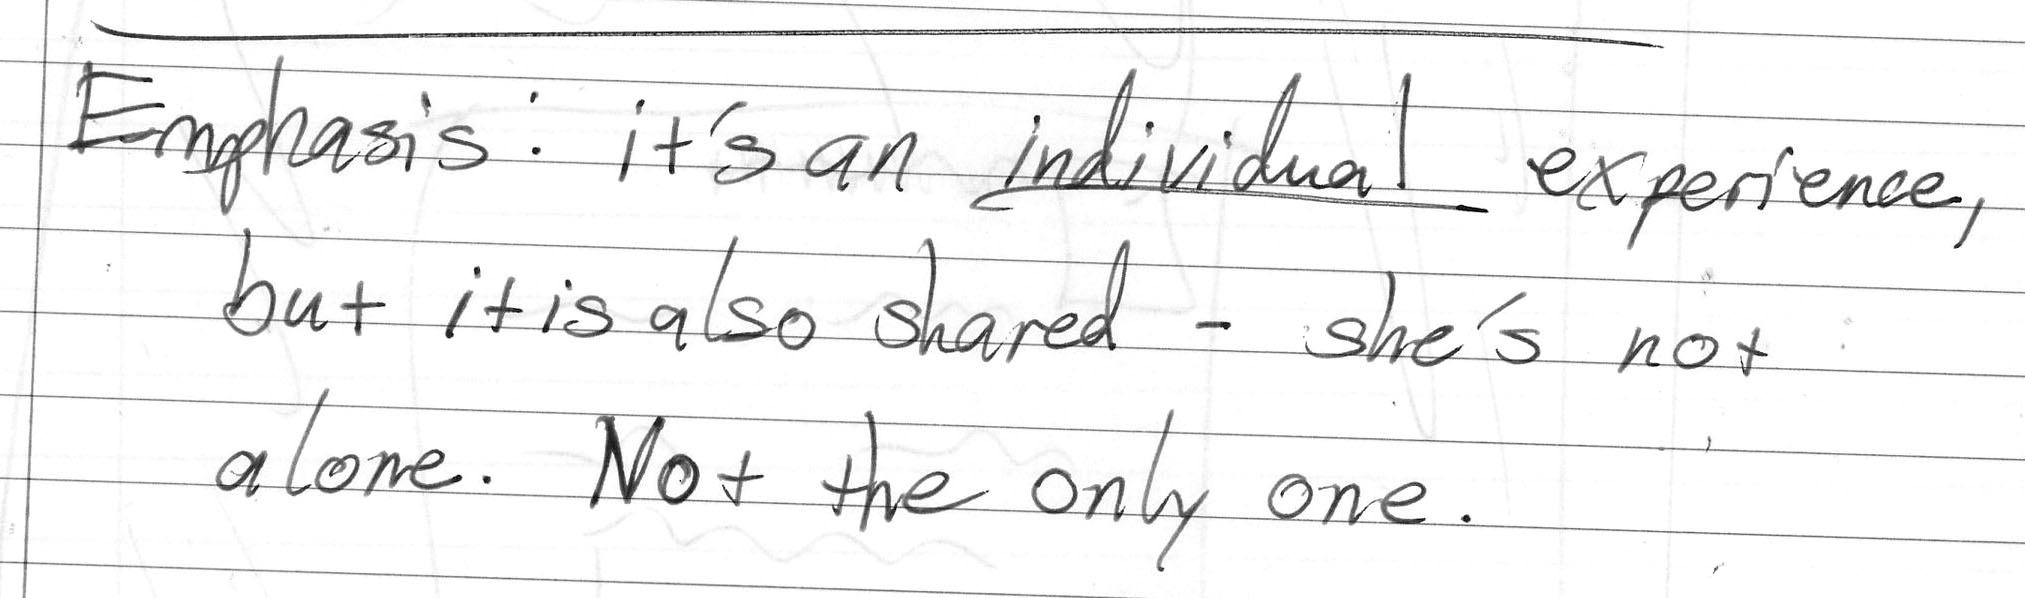 Emphasis: it's an individual experience,
but it is also shared - she's not
alone. Not the only one.